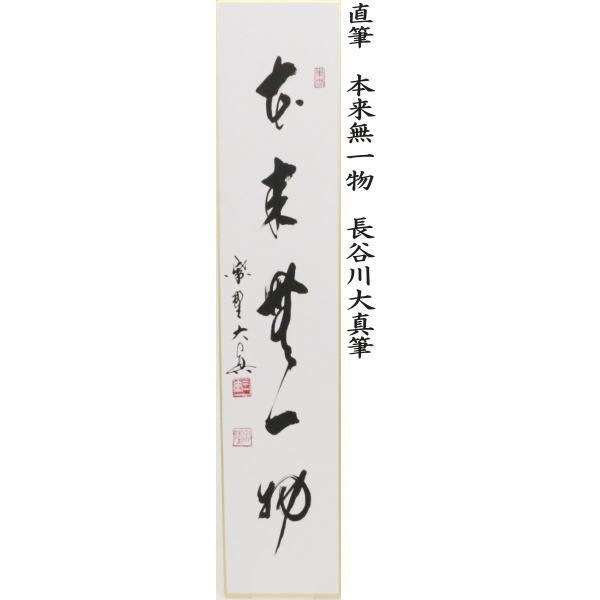 直筆　本来無一物　長谷川大真筆
本来無一物
紫野大真